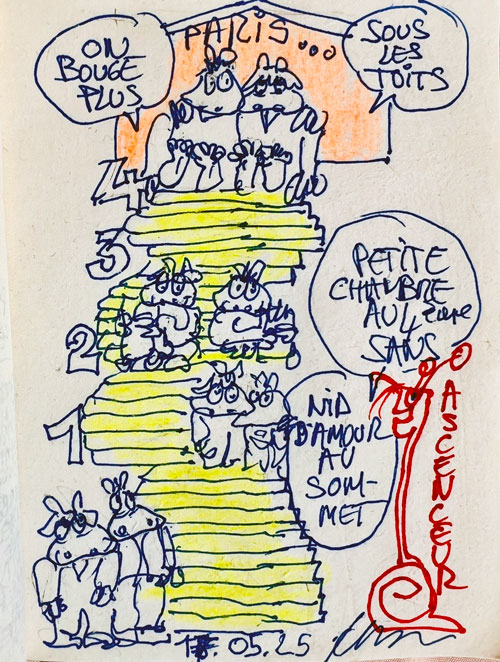 PARIS...
ON
BOUGE
PLUS
SOUS
LES
TOITS
4
3
PETITE
CHAMBRE
AU 4 ième
SANS
ASCENCEUR
2
NID
D'AMOUR
AU
SOM-
MET
1
05.25